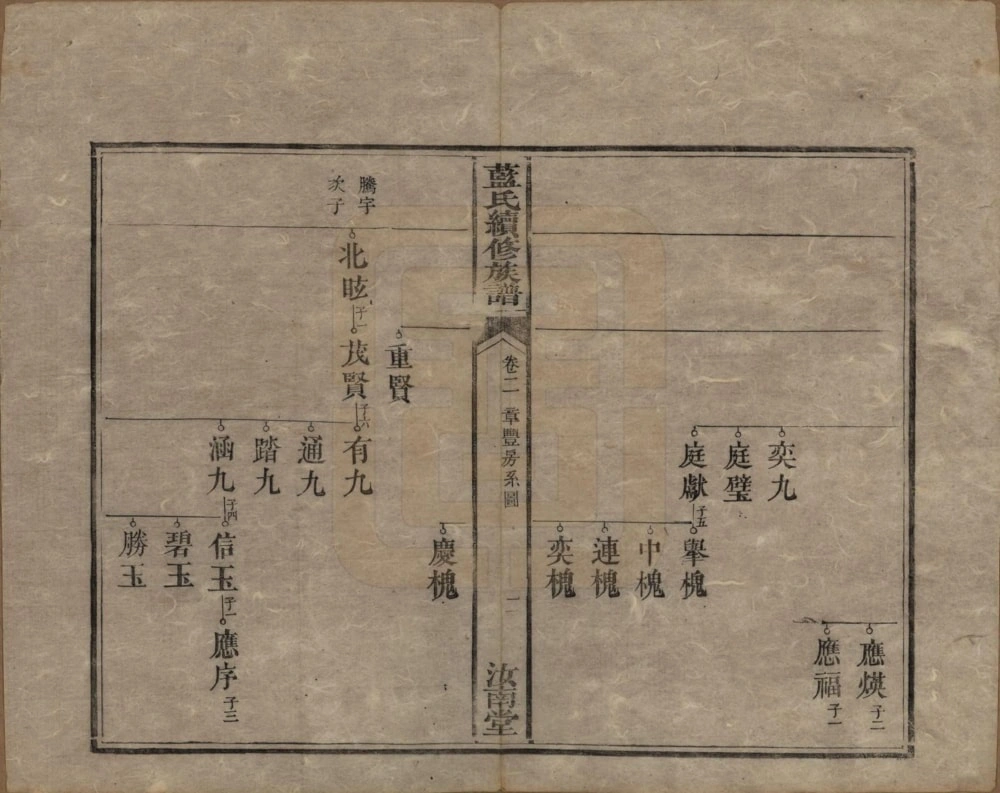 應煐子二
應福子一
奕九
庭璧
庭獻子五
舉槐
中槐
連槐
奕槐
藍氏續修族譜
卷二
章豐房系圖
一
汝南堂
慶槐
重賢
騰宇
次子
北昡子一
茂賢子六
有九
通九
踏九
涵九子四
信玉子一
應序子三
碧玉
勝玉